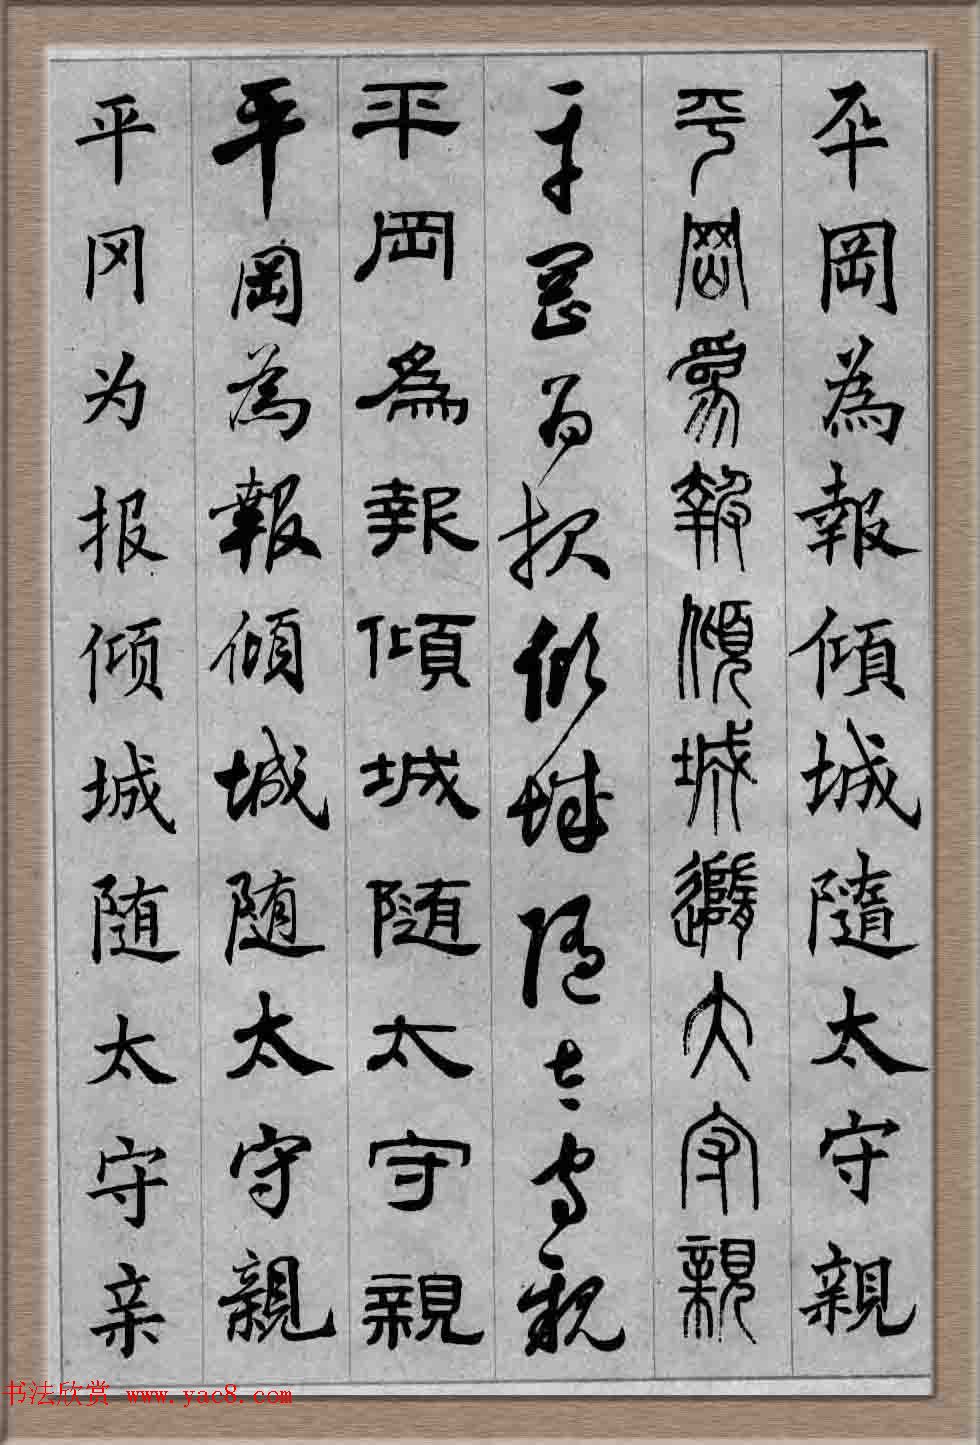 平岡為報傾城隨太守親
平岡爲報傾城隨太守親
平岡为报倾城随太守親
平岡為報傾城隨太守親
平岡為報傾城随太守親
平冈为报倾城随太守亲
书法欣赏 www.yac8.com